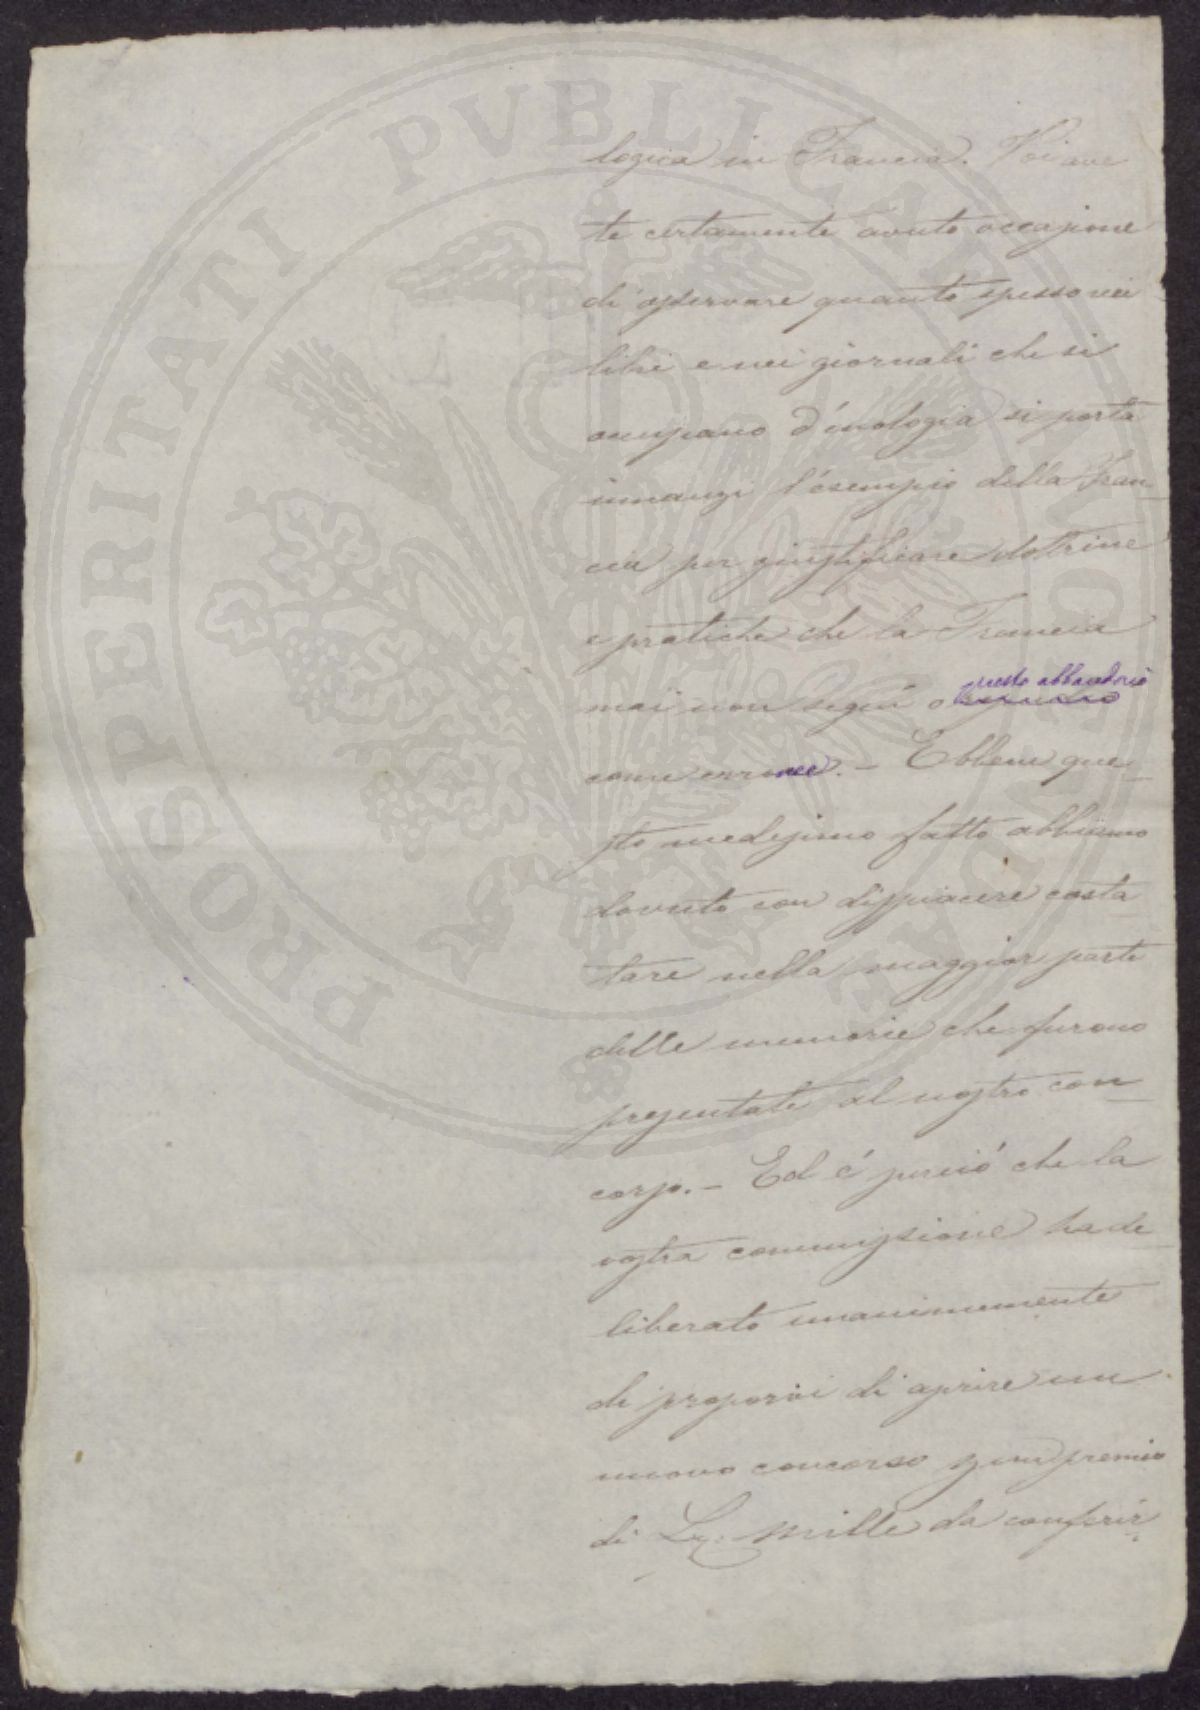 PROSPERITATI PVBLICAE AVGENDAE
logica in Francia. Voi ave
te certamente avuto occasione
di osservare quanto spesso nei
libri e nei giornali che si
occupano d'enologia si porta
innanzi l'esempio della Fran
cia per giustificare dottrine
e pratiche che la Francia
mai non seguì o
presto abbandonò
come erronee. - Ebbene que
sto medesimo fatto abbiamo
dovuto con dispiacere costa
tare nella maggior parte
delle memorie che furono
presentate al nostro con
corso. - Ed é perció che la
vostra commissione ha de
liberato unanimemente
di proporvi di aprire un
nuovo concorso premio
di L. mille da conferir